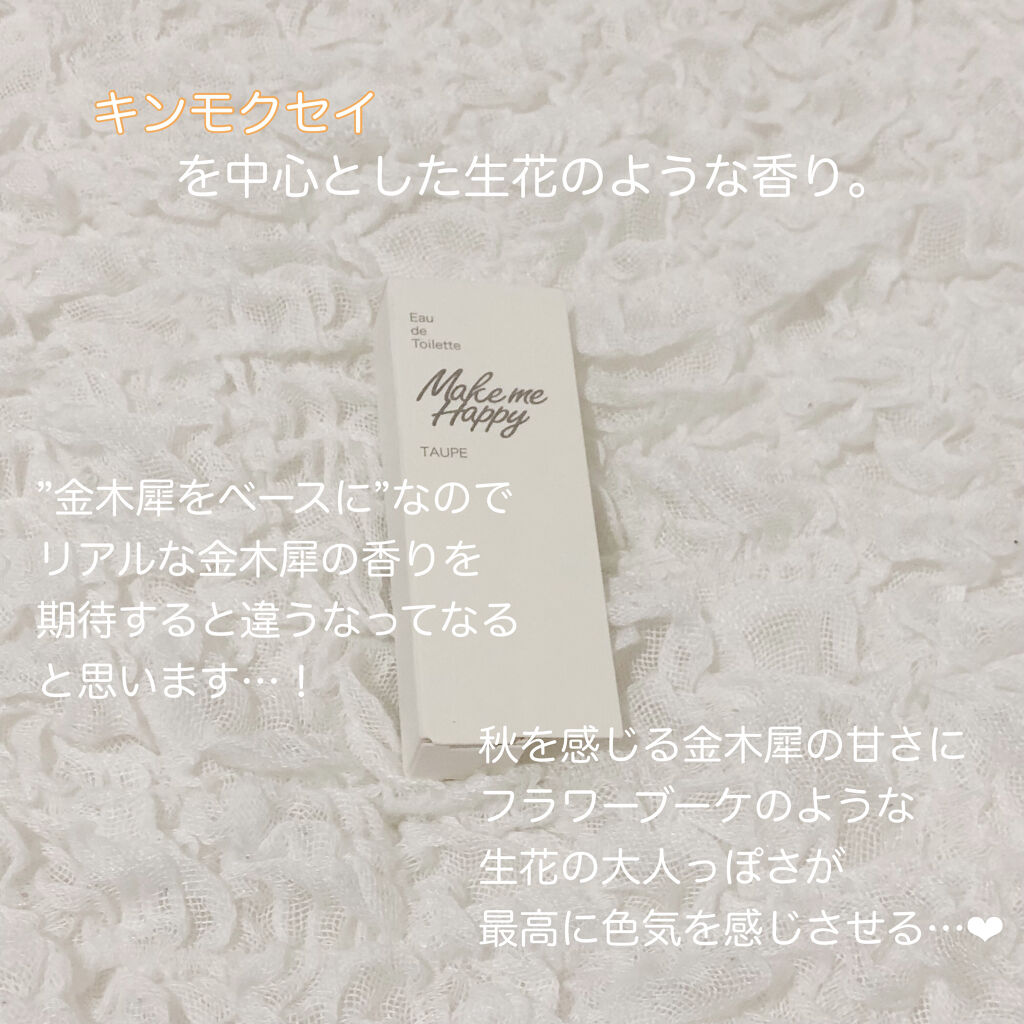 キンモクセイ
を中心とした生花のような香り。
Eau
de
Toilette
Make me
Happy
TAUPE
”金木犀をベースに”なので
リアルな金木犀の香りを
期待すると違うなってなる
と思います…！
秋を感じる金木犀の甘さに
フラワーブーケのような
生花の大人っぽさが
最高に色気を感じさせる…❤